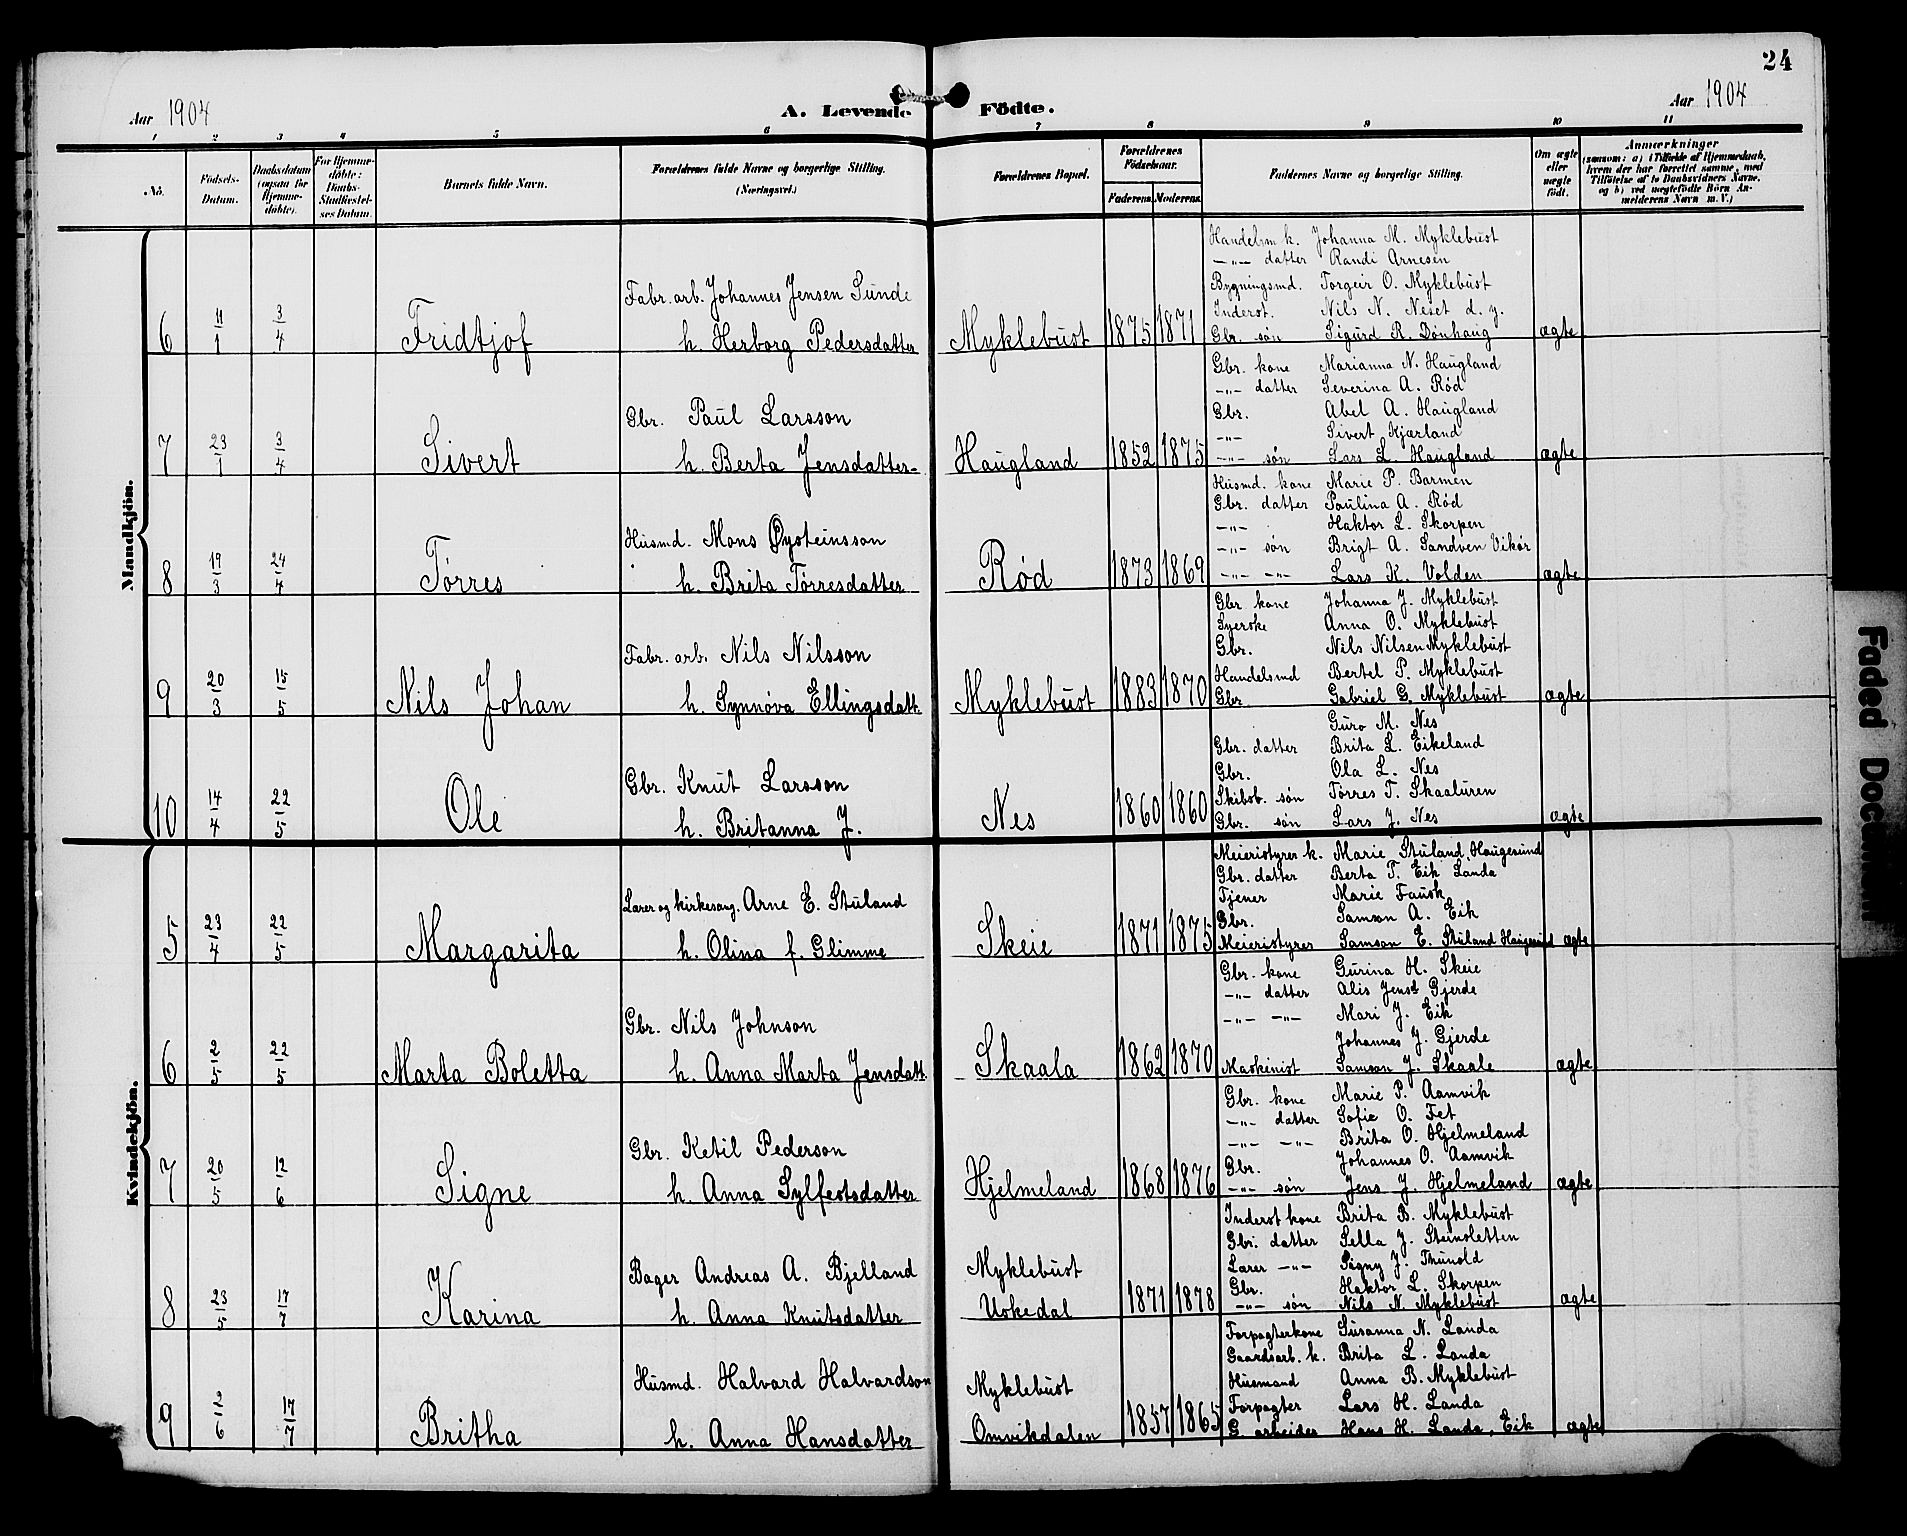 24
Aar 1904
A. Levende Födte.
Aar 1904
1 2 3 4 5 6 7 8 9 10 11
No.
Födsels-Datum.
Daabsdatum (ogsaa for Hjemme-döbte).
For Hjemme-döbte: Daabs-Stadfæstel-ses Datum.
Barnets fulde Navn.
Forældrenes fulde Navne og borgerlige Stilling. (Næringsvei.)
Forældrenes Bopæl.
Forældrenes Födselsaar.
Faderens. Moderens.
Faddernes Navne og borgerlige Stilling.
Om ægte eller uægte födt.
Anmærkninger
(saasom: a) i Tilfælde af Hjemmedaab, hvem der har forrettet samme, med Tilföielse af to Daabsvidners Navne, og b) ved uægtefödte Börn An-melderens Navn m. V.)
Mandkjön.
Handelsm k. Johanna M. Myklebust
-„- datter Randi Arnesen
Fabr. arb. Johannes Jensen Sunde
Bygningsmd. Torgeir O. Myklebust
Inderst. Nils N. Neset d. y.
6 11/1 3/4 Fridtjof h. Herborg Pedersdatter Myklebust 1875 1871 Gbr. søn Sigurd R. Dønhaug ægte
Gbr. kone Marianna N. Haugland
-„- datter Severina A. Rød
Gbr. Paul Larsson
Gbr. Abel A. Haugland
-„- Sivert Kjærland
7 23/1 3/4 Sivert h. Berta Jensdatter Haugland 1852 1875 -„- søn Lars L. Haugland ægte
Husmd. kone Marie P. Barmen
Gbr. datter Paulina A. Rød
Husmd. Mons Øysteinsson
-„- Haktor L. Skorpen
-„- søn Brigt A. Sandven Vikør
8 19/3 24/4 Tørres h. Brita Tørresdatter Rød 1873 1869 -„- -„- Lars K. Volden ægte
Gbr kone Johanna J. Myklebust
Syerske Anna O. Myklebust
Fabr. arb. Nils Nilsson
Gbr. Nils Nilsen Myklebust
Handelsmd Bertel P. Myklebust
9 20/3 15/5 Nils Johan h. Synnøva Ellingsdatt. Myklebust 1883 1870 Gbr. Gabriel G. Myklebust ægte
Guro M. Nes
Gbr. datter Brita L. Eikeland
Gbr. Knut Larsson
Gbr. Ola L. Nes
Skibsb. søn Tørres T. Skaaluren
10 14/4 22/5 Ole h. Britanna J. Nes 1860 1860 Gbr. søn Lars J. Nes ægte
Kvindekjön.
Meieristyrer k. Marie Stuland, Haugesund
Gbr. datter Berta T. Eik Landa
Lærer og kirkesang. Arne E. Stuland
Tjener Marie Fausk
Gbr. Samson A. Eik
5 23/4 22/5 Margarita h. Olina f. Glimme Skeie 1871 1875 Meieristyrer Samson E. Stuland Haugesund ægte
Gbr. kone Gurina H. Skeie
-„- datter Alis Jensd Gjerde
Gbr. Nils Johnson
-„- -„- Mari J. Eik
Johannes J. Gjerde
6 2/5 22/5 Marta Boletta h. Anna Marta Jensdatt. Skaala 1862 1870 Maskinist Samson J. Skaale ægte
Gbr. kone Marie P. Aamvik
-„- datter Sofie O. Fet
Gbr. Ketil Pederson
-„- -„- Brita O. Hjelmeland
Gbr. Johannes O. Aamvik
7 20/5 12/6 Signe h. Anna Sylfestsdatter Hjelmeland 1868 1876 -„- søn Jens J. Hjelmeland ægte
Inderst kone Brita B. Myklebust
Gbr. datter Sella J. Steinsletten
Bager Andreas A. Bjelland Myklebust
Lærer -„- Signy J. Thunold
Gbr. Haktor L. Skorpen
8 23/5 17/7 Karina h. Anna Knutsdatter Uskedal 1871 1878 -„- søn Nils N. Myklebust ægte
Forpagterkone Susanna N. Landa
Gaardsarb. k. Brita L. Landa
Husmd. Halvard Halvardson Myklebust
Husmand Anna B. Myklebust
Forpagter Lars H. Landa
9 2/6 17/7 Britha h. Anna Hansdatter Omvikdalen 1857 1865 G. arbeider Hans H. Landa, Eik ægte
Faded Document